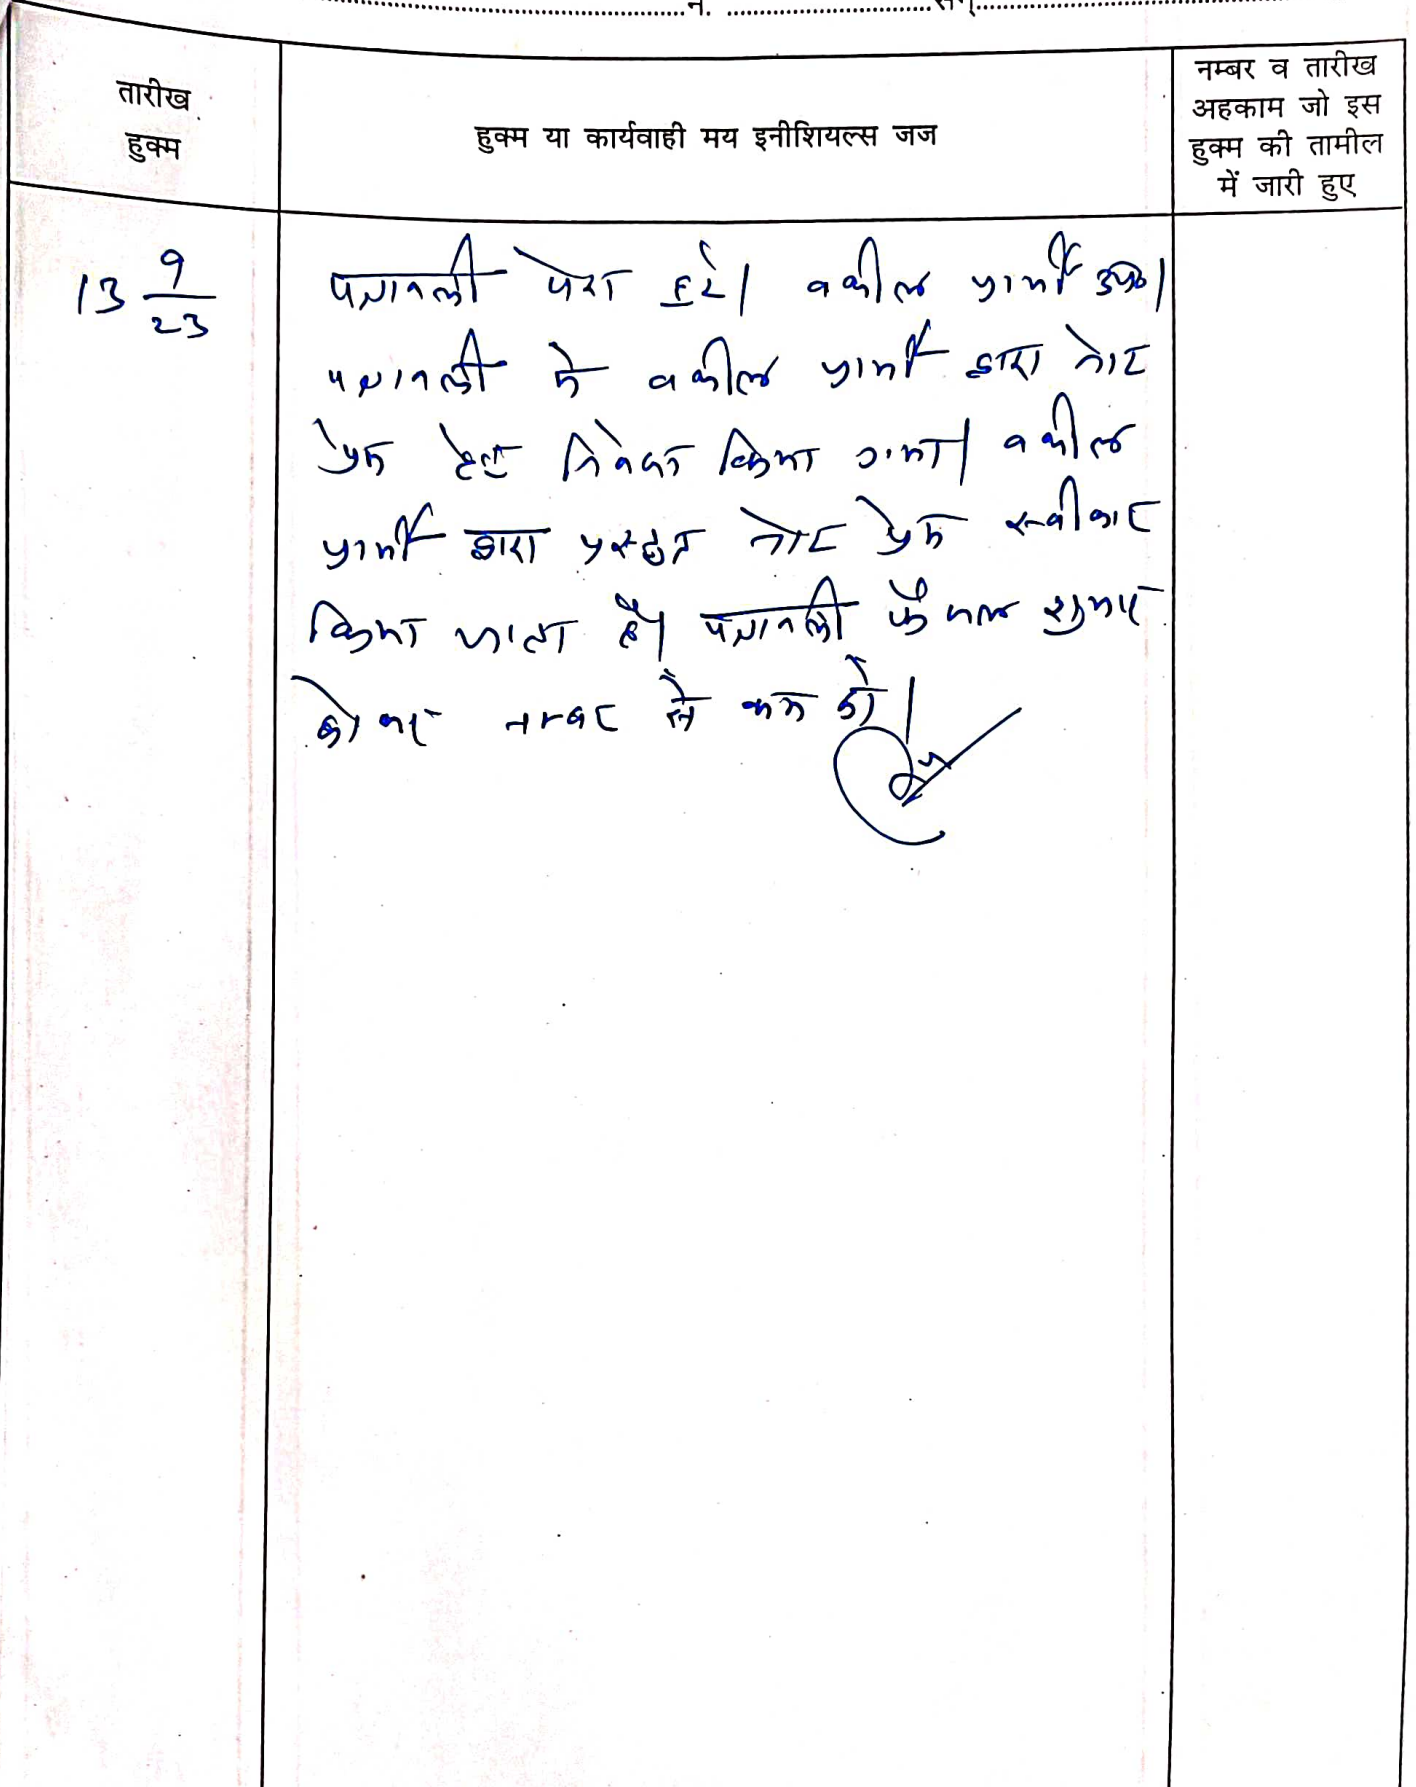 नं. सन्
तारीख
हुक्म
हुक्म या कार्यवाही मय इनीशियल्स जज
नम्बर व तारीख
अहकाम जो इस
हुक्म की तामील
में जारी हुए
13 9/23
पत्रावली पेश हुई। वकील प्रार्थी उप०।
पत्रावली में वकील प्रार्थी द्वारा नोट
प्रेस हेतु निवेदन किया गया। वकील
प्रार्थी द्वारा प्रस्तुत नोट प्रेस स्वीकार
किया जाता है। पत्रावली फैसल शुमार
होकर नम्बर से कम हो।